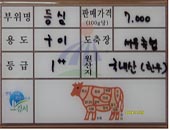 부위명 등심 판매가격 (100g당) 7.000
용도 구이 도축장 서울축협
등급 1++ 원산지 국내산 (한우)